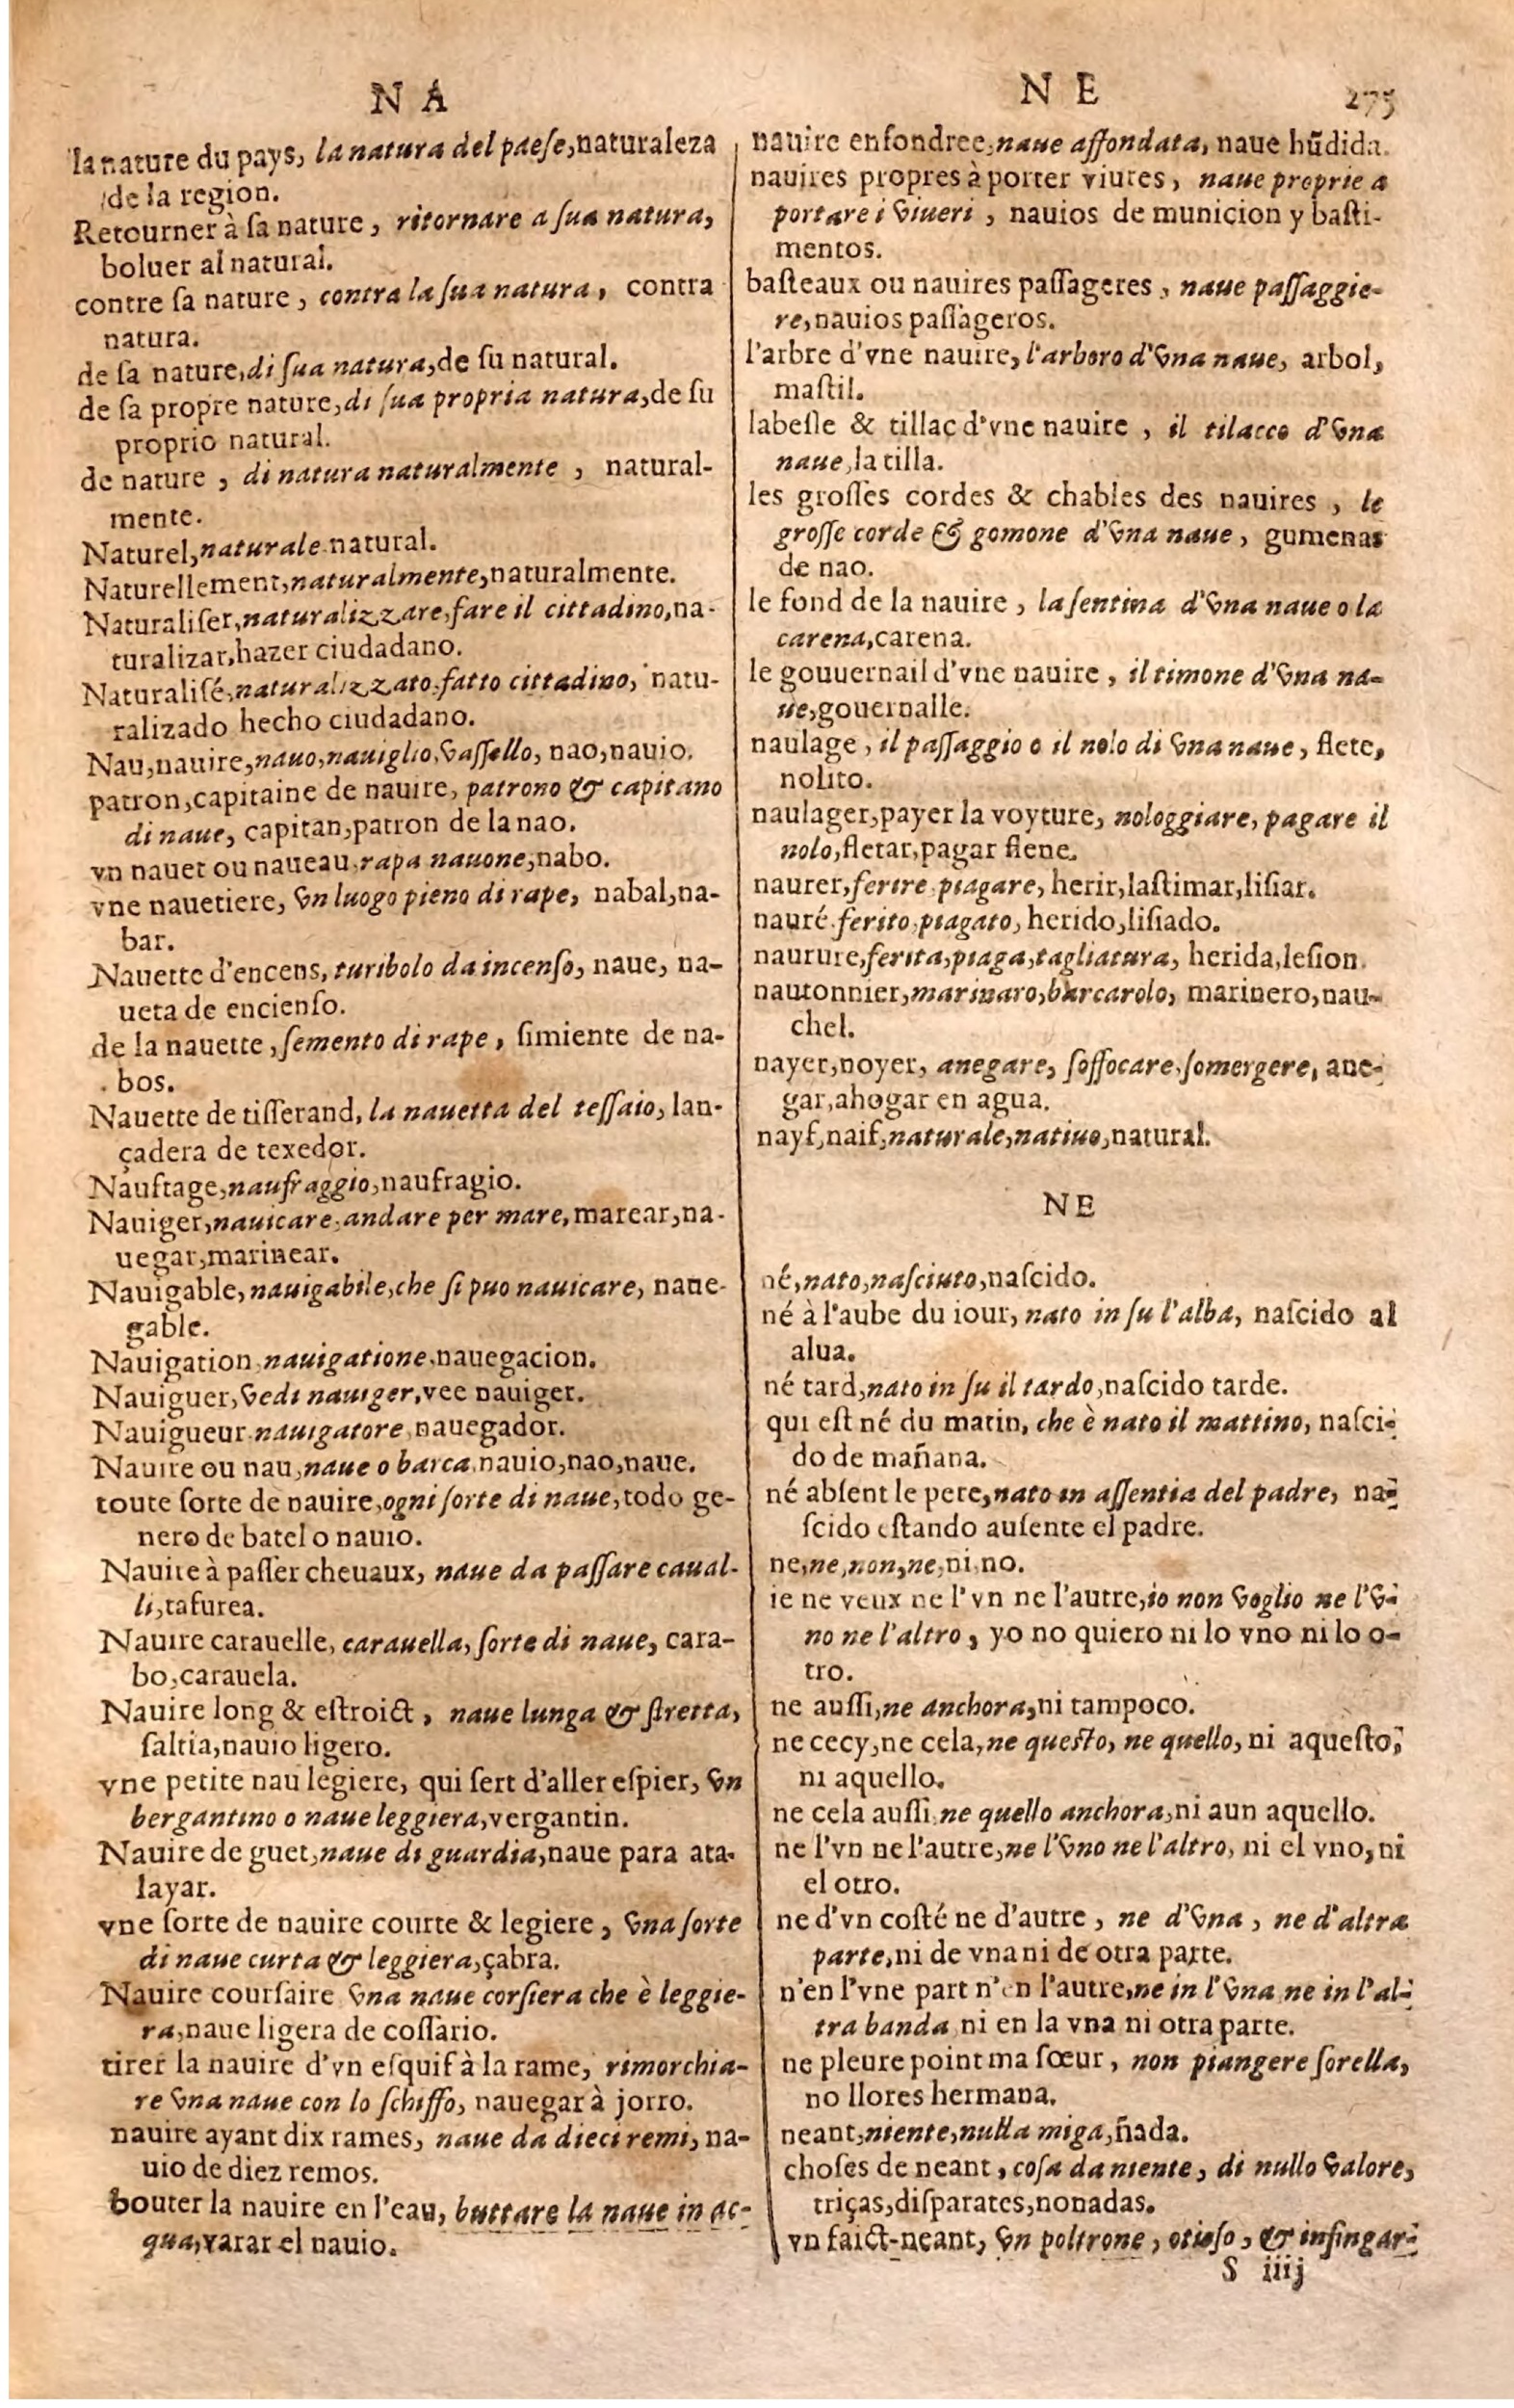 N A
la nature du pays, la natura del paeſe, naturaleza
de la region.
Retourner à ſa nature, ritornare a ſua natura,
boluer al natural.
contre ſa nature, contra la ſua natura, contra
natura.
de ſa nature, di ſua natura, de ſu natural.
de ſa propre nature, di ſua propria natura, de ſu
proprio natural.
de nature, di natura naturalmente, natural-
mente.
Naturel, naturale natural.
Naturellement, naturalmente, naturalmente.
Naturaliſer, naturalizzare, fare il cittadino, na-
turalizar, hazer ciudadano.
Naturaliſé, naturalizzato, fatto cittadino, natu-
ralizado hecho ciudadano.
Nau, nauire, nauo, nauiglio, vaſſello, nao, nauio.
patron, capitaine de nauire, patrono & capitano
di naue, capitan, patron de la nao.
vn nauet ou naueau, rapa nauone, nabo.
vne nauetiere, vn luogo pieno di rape, nabal, na-
bar.
Nauette d'encens, turibolo da incenſo, naue, na-
ueta de encienſo.
de la nauette, ſemento di rape, ſimiente de na-
bos.
Nauette de tiſſerand, la nauetta del teſſaio, lan-
çadera de texedor.
Naufrage, naufraggio, naufragio.
Nauiger, nauicare, andare per mare, marear, na-
uegar, marinear.
Nauigable, nauigabile, che ſi puo nauicare, naue-
gable.
Nauigation, nauigatione, nauegacion.
Nauiguer, vedi nauiger, vee nauiger.
Nauigueur nauigatore, nauegador.
Nauire ou nau, naue o barca, nauio, nao, naue.
toute ſorte de nauire, ogni ſorte di naue, todo ge-
nero de batel o nauio.
Nauire à paſſer cheuaux, naue da paſſare caual-
li, tafurea.
Nauire carauelle, carauella, ſorte di naue, cara-
bo, carauela.
Nauire long & eſtroict, naue lunga & ſtretta,
ſaltia, nauio ligero.
vne petite nau legiere, qui ſert d'aller eſpier, vn
bergantino o naue leggiera, vergantin.
Nauire de guet, naue di guardia, naue para ata-
layar.
vne ſorte de nauire courte & legiere, vna ſorte
di naue curta & leggiera, çabra.
Nauire courſaire vna naue corſiera che è leggie-
ra, naue ligera de coſſario.
tirer la nauire d'vn eſquif à la rame, rimorchia-
re vna naue con lo ſchiffo, nauegar à jorro.
nauire ayant dix rames, naue da dieci remi, na-
uio de diez remos.
bouter la nauire en l'eau, buttare la naue in ac-
qua, varar el nauio.
N E 275
nauire enfondree, naue affondata, naue hũdida.
nauires propres à porter viures, naue proprie a
portare i viueri, nauios de municion y baſti-
mentos.
baſteaux ou nauires paſſageres, naue paſſaggie-
re, nauios paſſageros.
l'arbre d'vne nauire, l'arboro d'vna naue, arbol,
maſtil.
labeſle & tillac d'vne nauire, il tilacco d'vna
naue, la tilla.
les groſſes cordes & chables des nauires, le
groſſe corde & gomone d'vna naue, gumenas
de nao.
le fond de la nauire, la ſentina d'vna naue o la
carena, carena.
le gouuernail d'vne nauire, il timone d'vna na-
ue, gouernalle.
naulage, il paſſaggio o il nolo di vna naue, flete,
nolito.
naulager, payer la voyture, nologgiare, pagare il
nolo, fletar, pagar flene.
naurer, ferire piagare, herir, laſtimar, liſiar.
nauré ferito, piagato, herido, liſiado.
naurure, ferita, piaga, tagliatura, herida, leſion.
nautonnier, marinaro, barcarolo, marinero, nau-
chel.
nayer, noyer, anegare, ſoffocare, ſomergere, ane-
gar, ahogar en agua.
nayf, naif, naturale, natiuo, natural.
NE
né, nato, naſciuto, naſcido.
né à l'aube du iour, nato in ſu l'alba, naſcido al
alua.
né tard, nato in ſu il tardo, naſcido tarde.
qui eſt né du matin, che è nato il mattino, naſci-
do de mañana.
né abſent le pere, nato in aſſentia del padre, na-
ſcido eſtando auſente el padre.
ne, ne, non, ne, ni, no.
ie ne veux ne l'vn ne l'autre, io non voglio ne l'v-
no ne l'altro, yo no quiero ni lo vno ni lo o-
tro.
ne auſſi, ne anchora, ni tampoco.
ne cecy, ne cela, ne queſto, ne quello, ni aqueſto,
ni aquello.
ne cela auſſi, ne quello anchora, ni aun aquello.
ne l'vn ne l'autre, ne l'vno ne l'altro, ni el vno, ni
el otro.
ne d'vn coſté ne d'autre, ne d'vna, ne d'altra
parte, ni de vna ni de otra parte.
n'en l'vne part n'en l'autre, ne in l'vna ne in l'al-
tra banda ni en la vna ni otra parte.
ne pleure point ma sœur, non piangere ſorella,
no llores hermana.
neant, niente, nulla miga, ñada.
choſes de neant, coſa da niente, di nullo valore,
triças, diſparates, nonadas.
vn faict-neant, vn poltrone, otioſo, & infingar-
S iiij